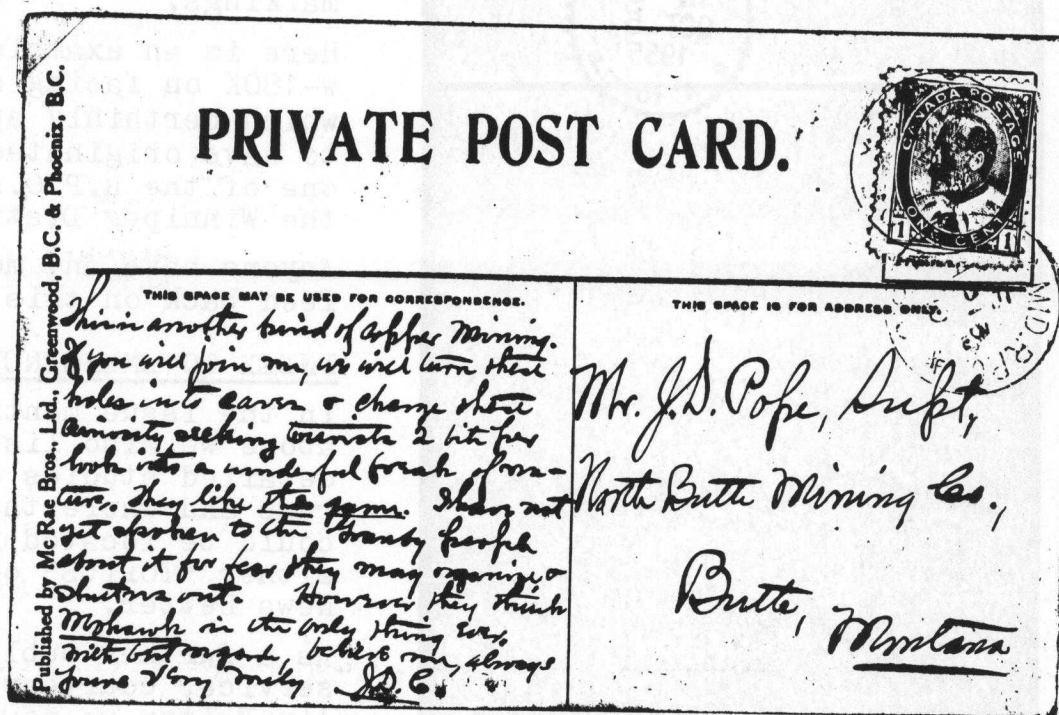 Published by McRae Bros., Ltd., Greenwood, B.C. & Phoenix, B.C.
PRIVATE POST CARD.
CANADA POSTAGE
ONE CENT
1 1
MID. R.P.O.
THIS SPACE MAY BE USED FOR CORRESPONDENCE.
This is another kind of Copper Mining.
If you will join me, we will turn these
holes into caves & charge these
curiosity seeking tourists 2 bits per
look into a wonderful freak of na-
ture. They like the game. I have not
yet spoken to the Granby people
about it for fear they may organize &
shut me out. However they think
Mohawk is the only thing ever.
With best regards, believe me, always
yours Very truly J.D.C.
THIS SPACE IS FOR ADDRESS ONLY.
Mr. J.D. Pope, Supt,
North Butte Mining Co.,
Butte,
Montana